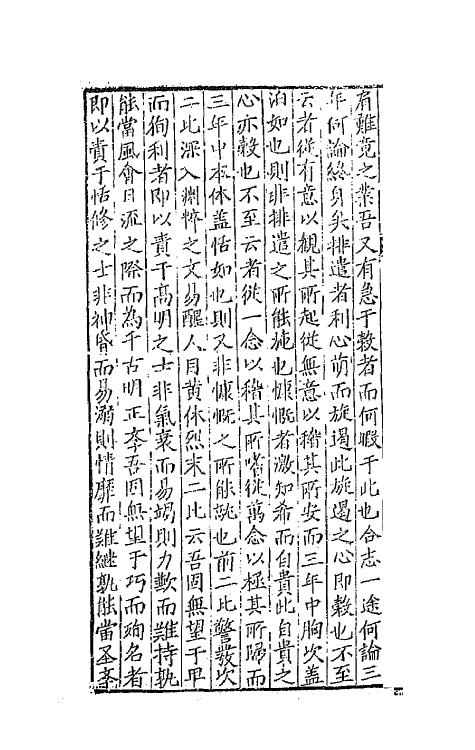 有難竟之業吾又有急于穀者而何暇于此也合志一途何論三
年何論終身矣排遣者利心萌而旋遏此旋遏之心即穀也不至
云者從有意以觀其所起從無意以稽其所安而三年中胸次蓋
泊如也則非排遣之所能施也慷慨者激知希而自貴此自貴之
心亦穀也不至云者從一念以稽其所嗜從萬念以極其所歸而
三年中根休蓋恬如也則又非慷慨之所能也前二比警敏次
二比深入淵悴之文易醒人目黃休烈末二比云吾固無望于早
而狥利者即以責于高明之士非氣衰而易竭則力歉而難持孰
能當風會日流之際而為千古明正吾固無望于巧而殉名者
即以責于恬修之士非神昏而易溺則情靡而難繼孰能當圣